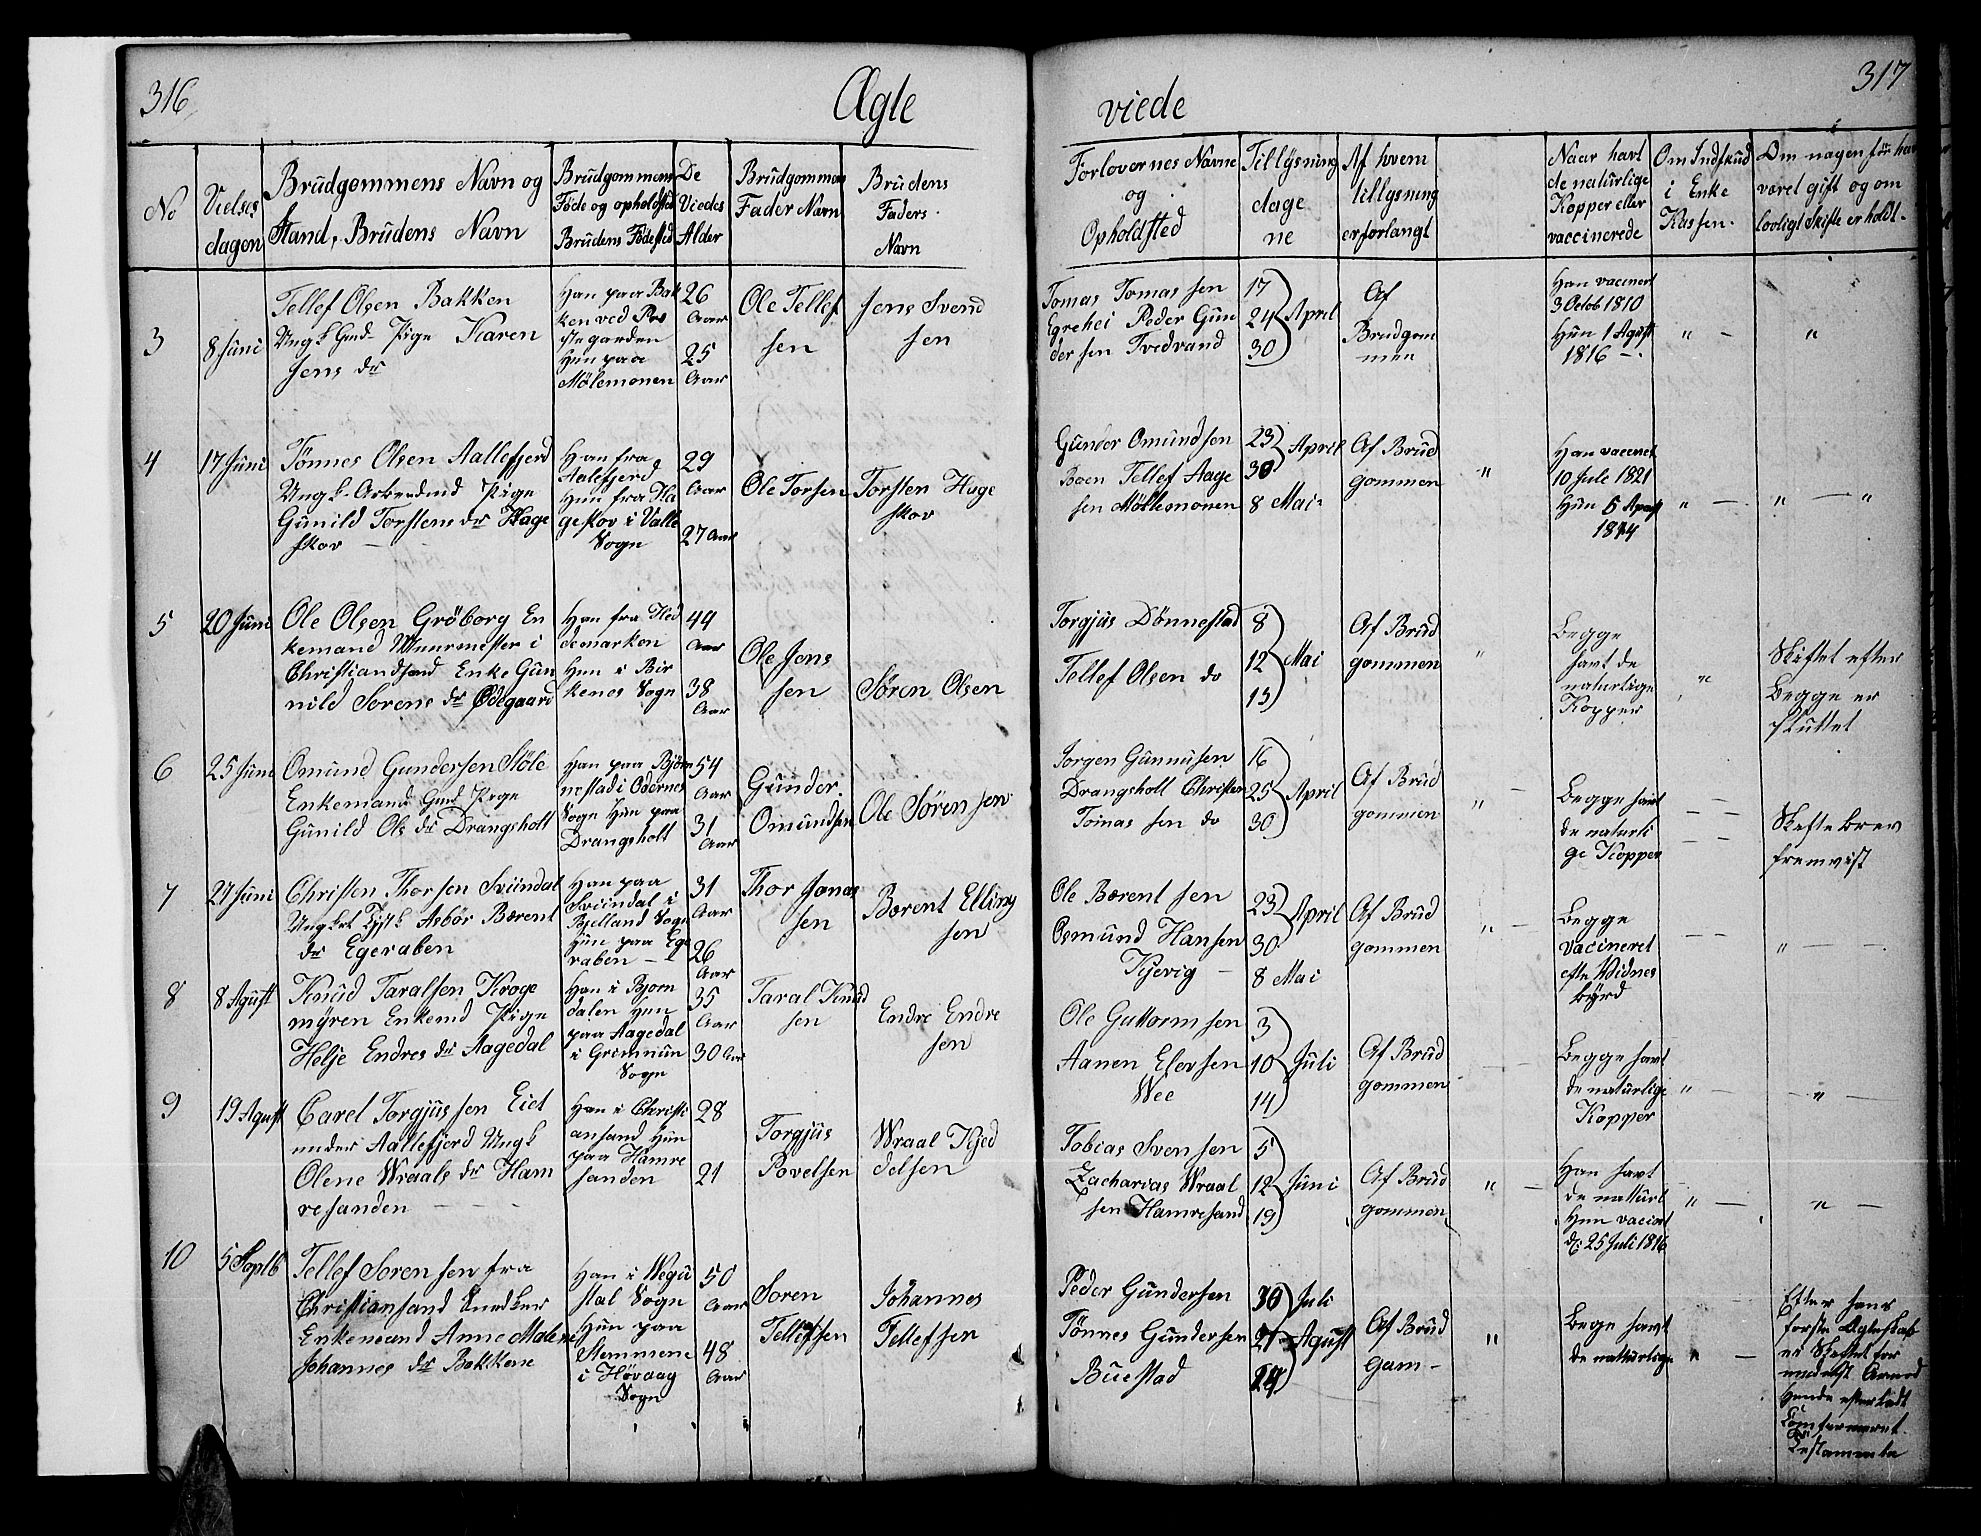 316
Ægte
viede
317
No
Vielses
dagen
Brudgommens Navn og
Stand, Brudens Navn
Brudgommens
Føde og opholdsted
Brudens Fødested
De
Viedes
Alder
Brudgommens
Fader Navn
Brudens
Faders
Navn
Forlovernes Navne
og
Opholdsted
Tillysning
dage
ne
Af hvem
tillysning
erforlangt
Naar havt
de naturlige
Kopper eller
vaccinerede
Om Indskud
i Enke
Kassen.
Om nogen før har
været gift og om
lovligt Skifte er holdt.
3
8 Juni
Tellef Olsen Bakken
Ungk Gmd Pige Karen
Jens dr
Han paa Bak
ken ved Pre
stegaarden
Hun paa
Mølemonen
26
Aar
25
Aar
Ole Tellef
sen
Jens Svend
sen
Tomas Tomas sen
Egrehei Peder Gun
der sen Tvedvand
17
24 April
30
Af
Brudgom
men
Han vaccineret
3 Octob 1810
Hun 1 Agust
1816 -
" -
"
4
17 Juni
Tønnes Olsen Aallefjerd
Ungk. Arbeidsmd Pige
Gunild Torstens dr Hage
skov -
Han fra
Aalefjerd
Hun fra Ha
geskov i Valle
Sogn
29
Aar
27 Aar
Ole Torsen
Torsten Hage
skov
Gunder Omundsen
Boen Tellef Aage
sen Møllemonen
23 April
30
8 Mai
Af Brud
gommen
"
Han vaccineret
10 Jule 1821
Hun 5 April
1814
" -
" - "
5
20 Juni
Ole Olsen Gröborg En
kemand Muurmester i
Christiandsand Enke Gun
nild Sorens dr Ødegaard
Han fra Hed
demarken
Hun i Bir
kenes Sogn
44
Aar
38
Aar
Ole Jens
sen
Søren Olsen
Torgjus Dönnestad
Tellef Olsen do
8
12 Mai
15
Af Brud
gommen
"
Begge
havt de
naturlige
Kopper
"
Skiftet efter
Begge er
sluttet
6
25 Juni
Omund Gundersen Støle
Enkemand Gmd Pige
Gunild Ols dr Drangsholt
Han paa Bjørn
nestad i Oddernes
Sogn Hun paa
Drangsholt
54
Aar
31
Aar
Gunder
Omundsen
Ole Sørensen
Jorgen Gunnusen
Drangsholt Christen
Tomas sen do
16
25 April
30
Af Brud
gommen
"
Begge havt
de naturli
ge Kopper
Skiftebrev
fremvist
7
27 Juni
Christen Thorsen Sviindal
Asbör Bærent
dr Egeraben
Han paa
Sviindal i
Bjelland Sogn
Hun paa Ege
raben -
31
Aar
26
Aar
Thor Jonas
sen
Bærent Elling
sen
Ole Bærent sen
Osmund Hansen
Kjevig -
23 April
30
8 Mai
Af Brud
gommen
" -
Begge
vacineret
efter Vidnes
byrd
" -
8
8 Agust
Knud Taralsen Kroge
myren Enkemd Pige
Helje Endres dr Aagedal
Han i Bjorn
dalen Hun
paa Aagedal
i Gremnun
Sogn
35
Aar
30 Aar
Taral Knud
sen
Endre Endre
sen
Ole Guttorm sen
Aanen Elevsen
Wee
3
10 Juli
14
Af Brud
gommen
Begge havt
de naturlige
Kopper
" -
" -
9
19 Agust
Carel Torgjus sen Eiet
under Aallefjerd Ungk
Olene Wraals dr Ham
resanden -
Han i Christi
ansand Hun
paa Hamre
sanden
28
21
Torgjus
Povelsen
Wraal Kjed
delsen
Tobias Svensen
Zacharias Wraal
sen Hamresand
5
12 Juni
19
Af Brud
gommen
" -
Han havt
de natturl
Hun vacinert
d: 25 Juli 1816
" -
" -
10
5 Septb
Tellef Soren sen fra
Christiansand Snedker
Enkemand Anne Malene
Johannes dr Bakkene
Han i Wegu
stal Sogn
Hun paa
Stemmene
i Høvaag
Sogn
50
Aar
48
Aar
Soren
Tellefsen
Johannes
Tellefsen
Peder Gundersen
Tønnes Gundersen
Buestad
30 Juli
21 Agust
24
Af Brud
Gom-
"
Bege havt
de natturlige
" -
Efter hans
forste Ægteskab
er Skiftet for
efterladt
Testamente